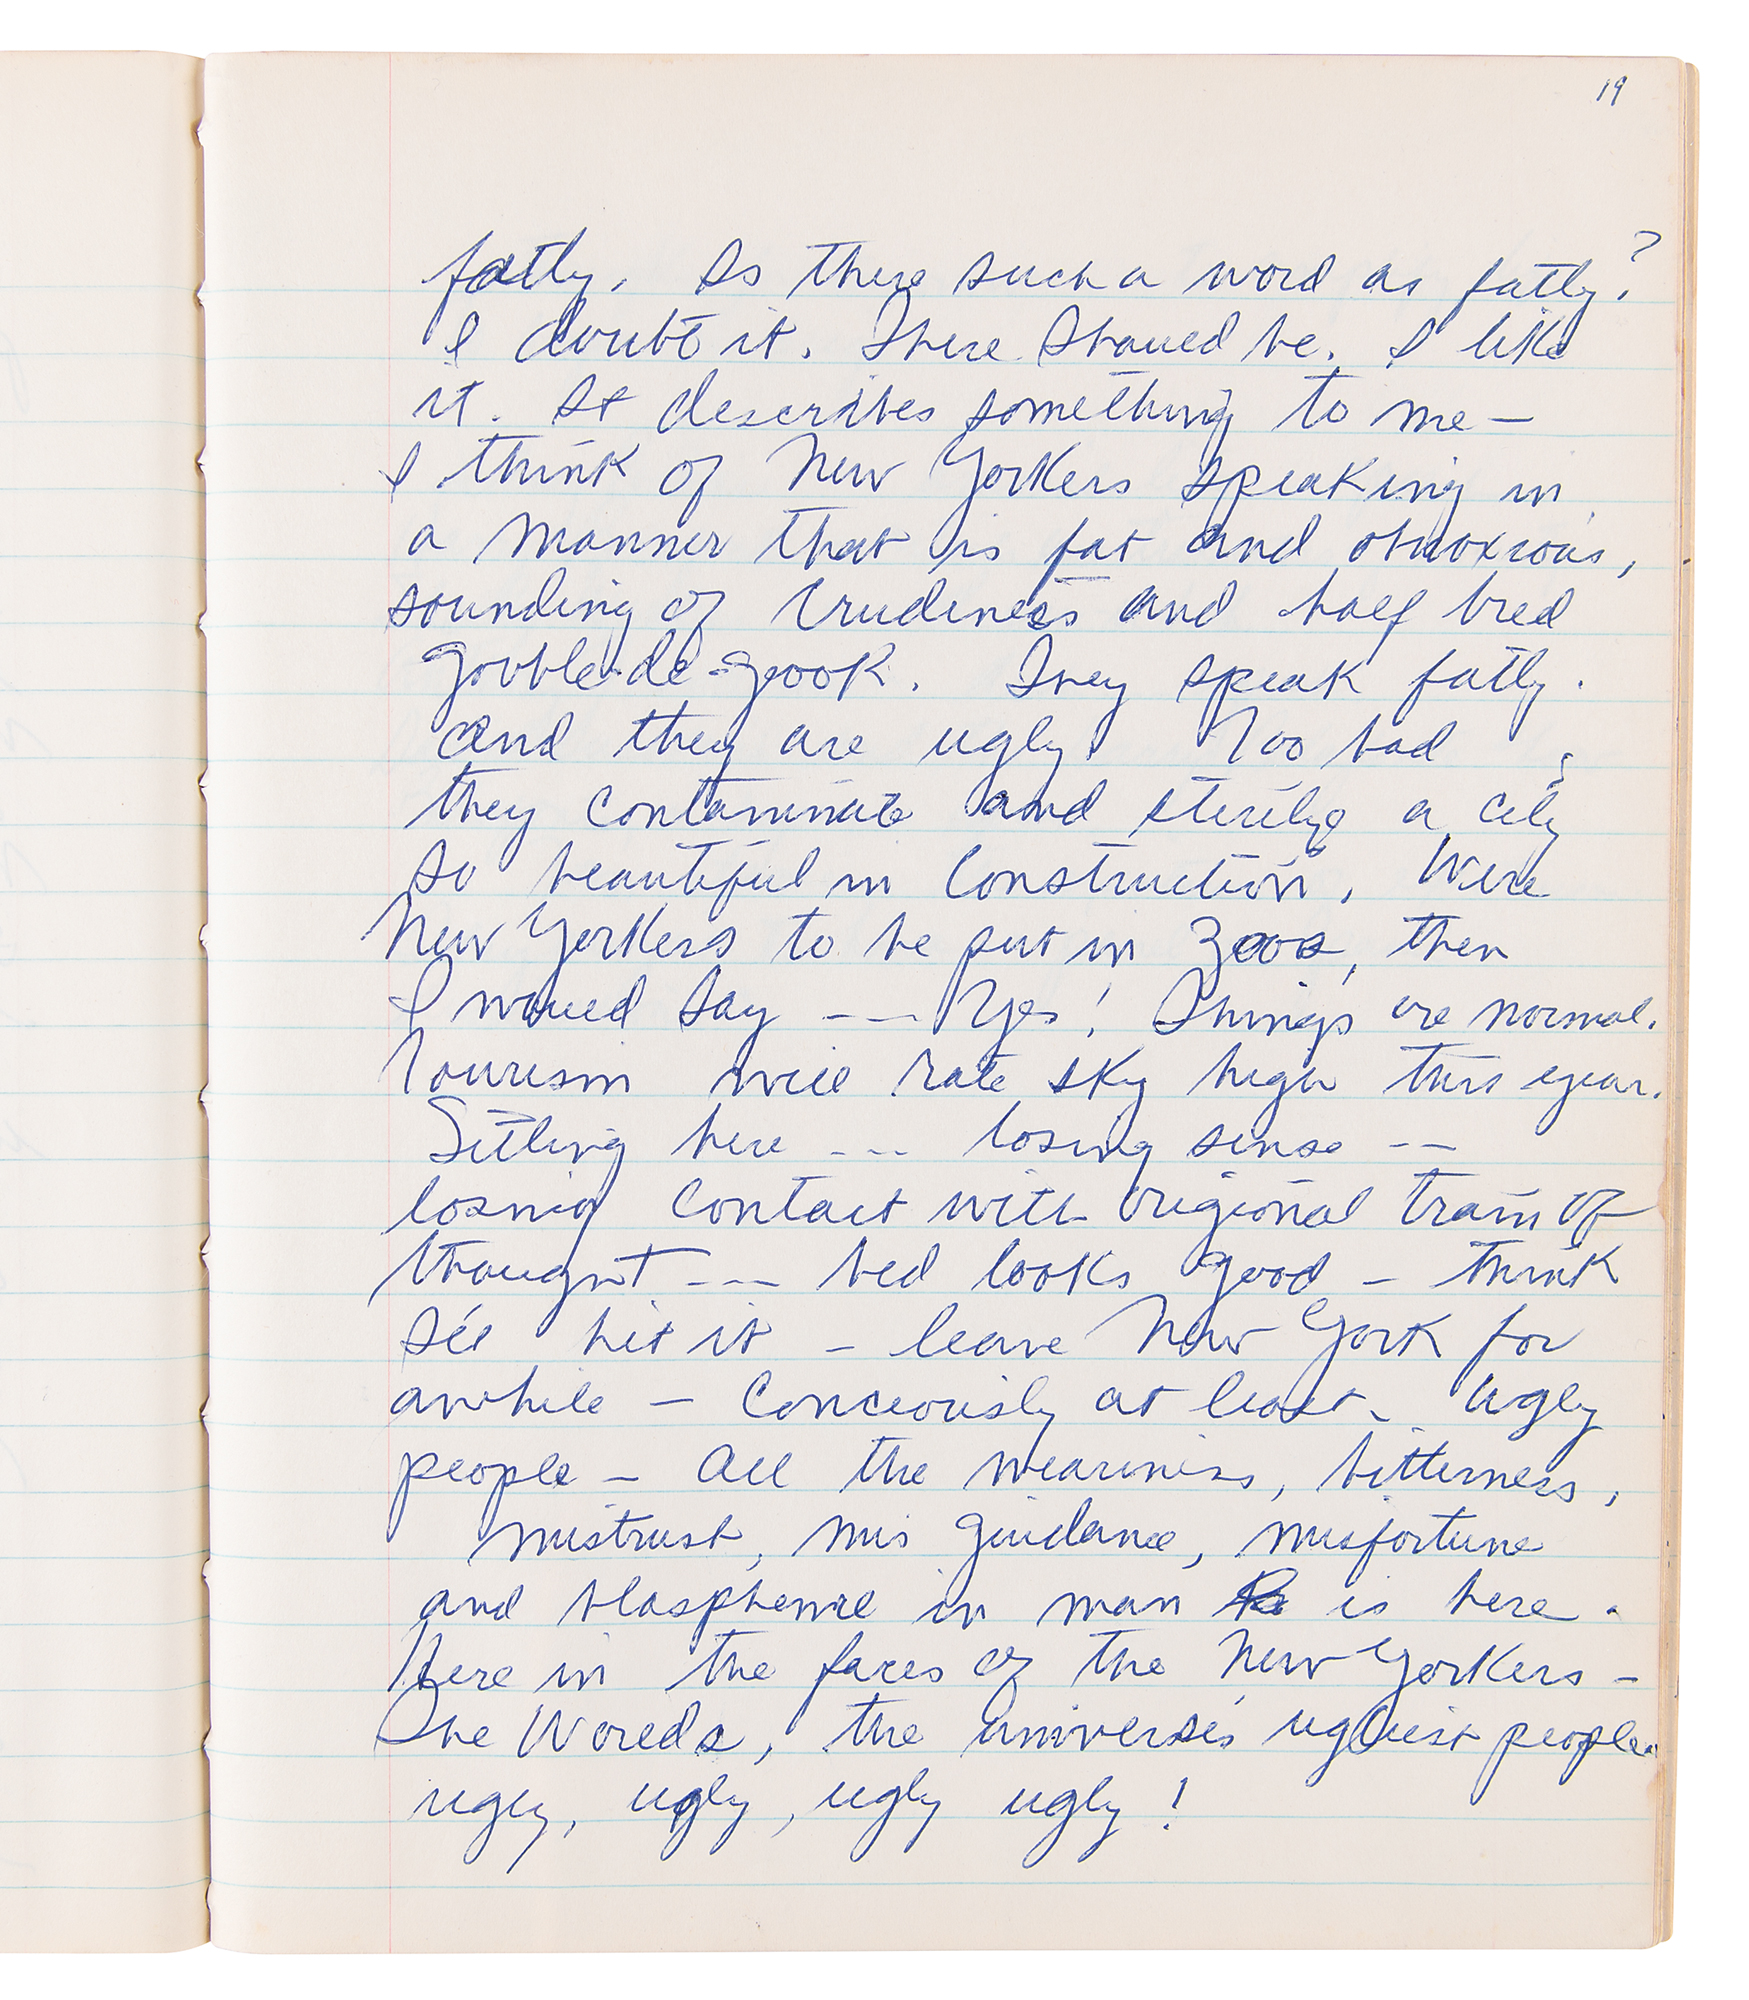 19
fatly. Is there such a word as fatly?
I doubt it. There should be. I like
it. It describes something to me —
I think of New Yorkers speaking in
a manner that is fat and obnoxious,
sounding of crudeness and half bred
gobble-de-gook. They speak fatly.
and they are ugly. Too bad
they contaminate and sterilize a city
so beautiful in construction. Were
New Yorkers to be put in zoos, then
I would say --- Yes! Things are normal.
Tourism will rate sky high this year.
Sitting here --- losing sense --
losing contact with origional train of
thought --- bed looks good — think
I'll hit it — leave New York for
awhile — Conceously at least. Ugly
people — All the weariness, bitterness,
mistrust, mis guidance, misfortune
and blaspheme in man is here.
Here in the faces of the New Yorkers —
The Worlds, the universes ugliest people.
ugly, ugly, ugly ugly!